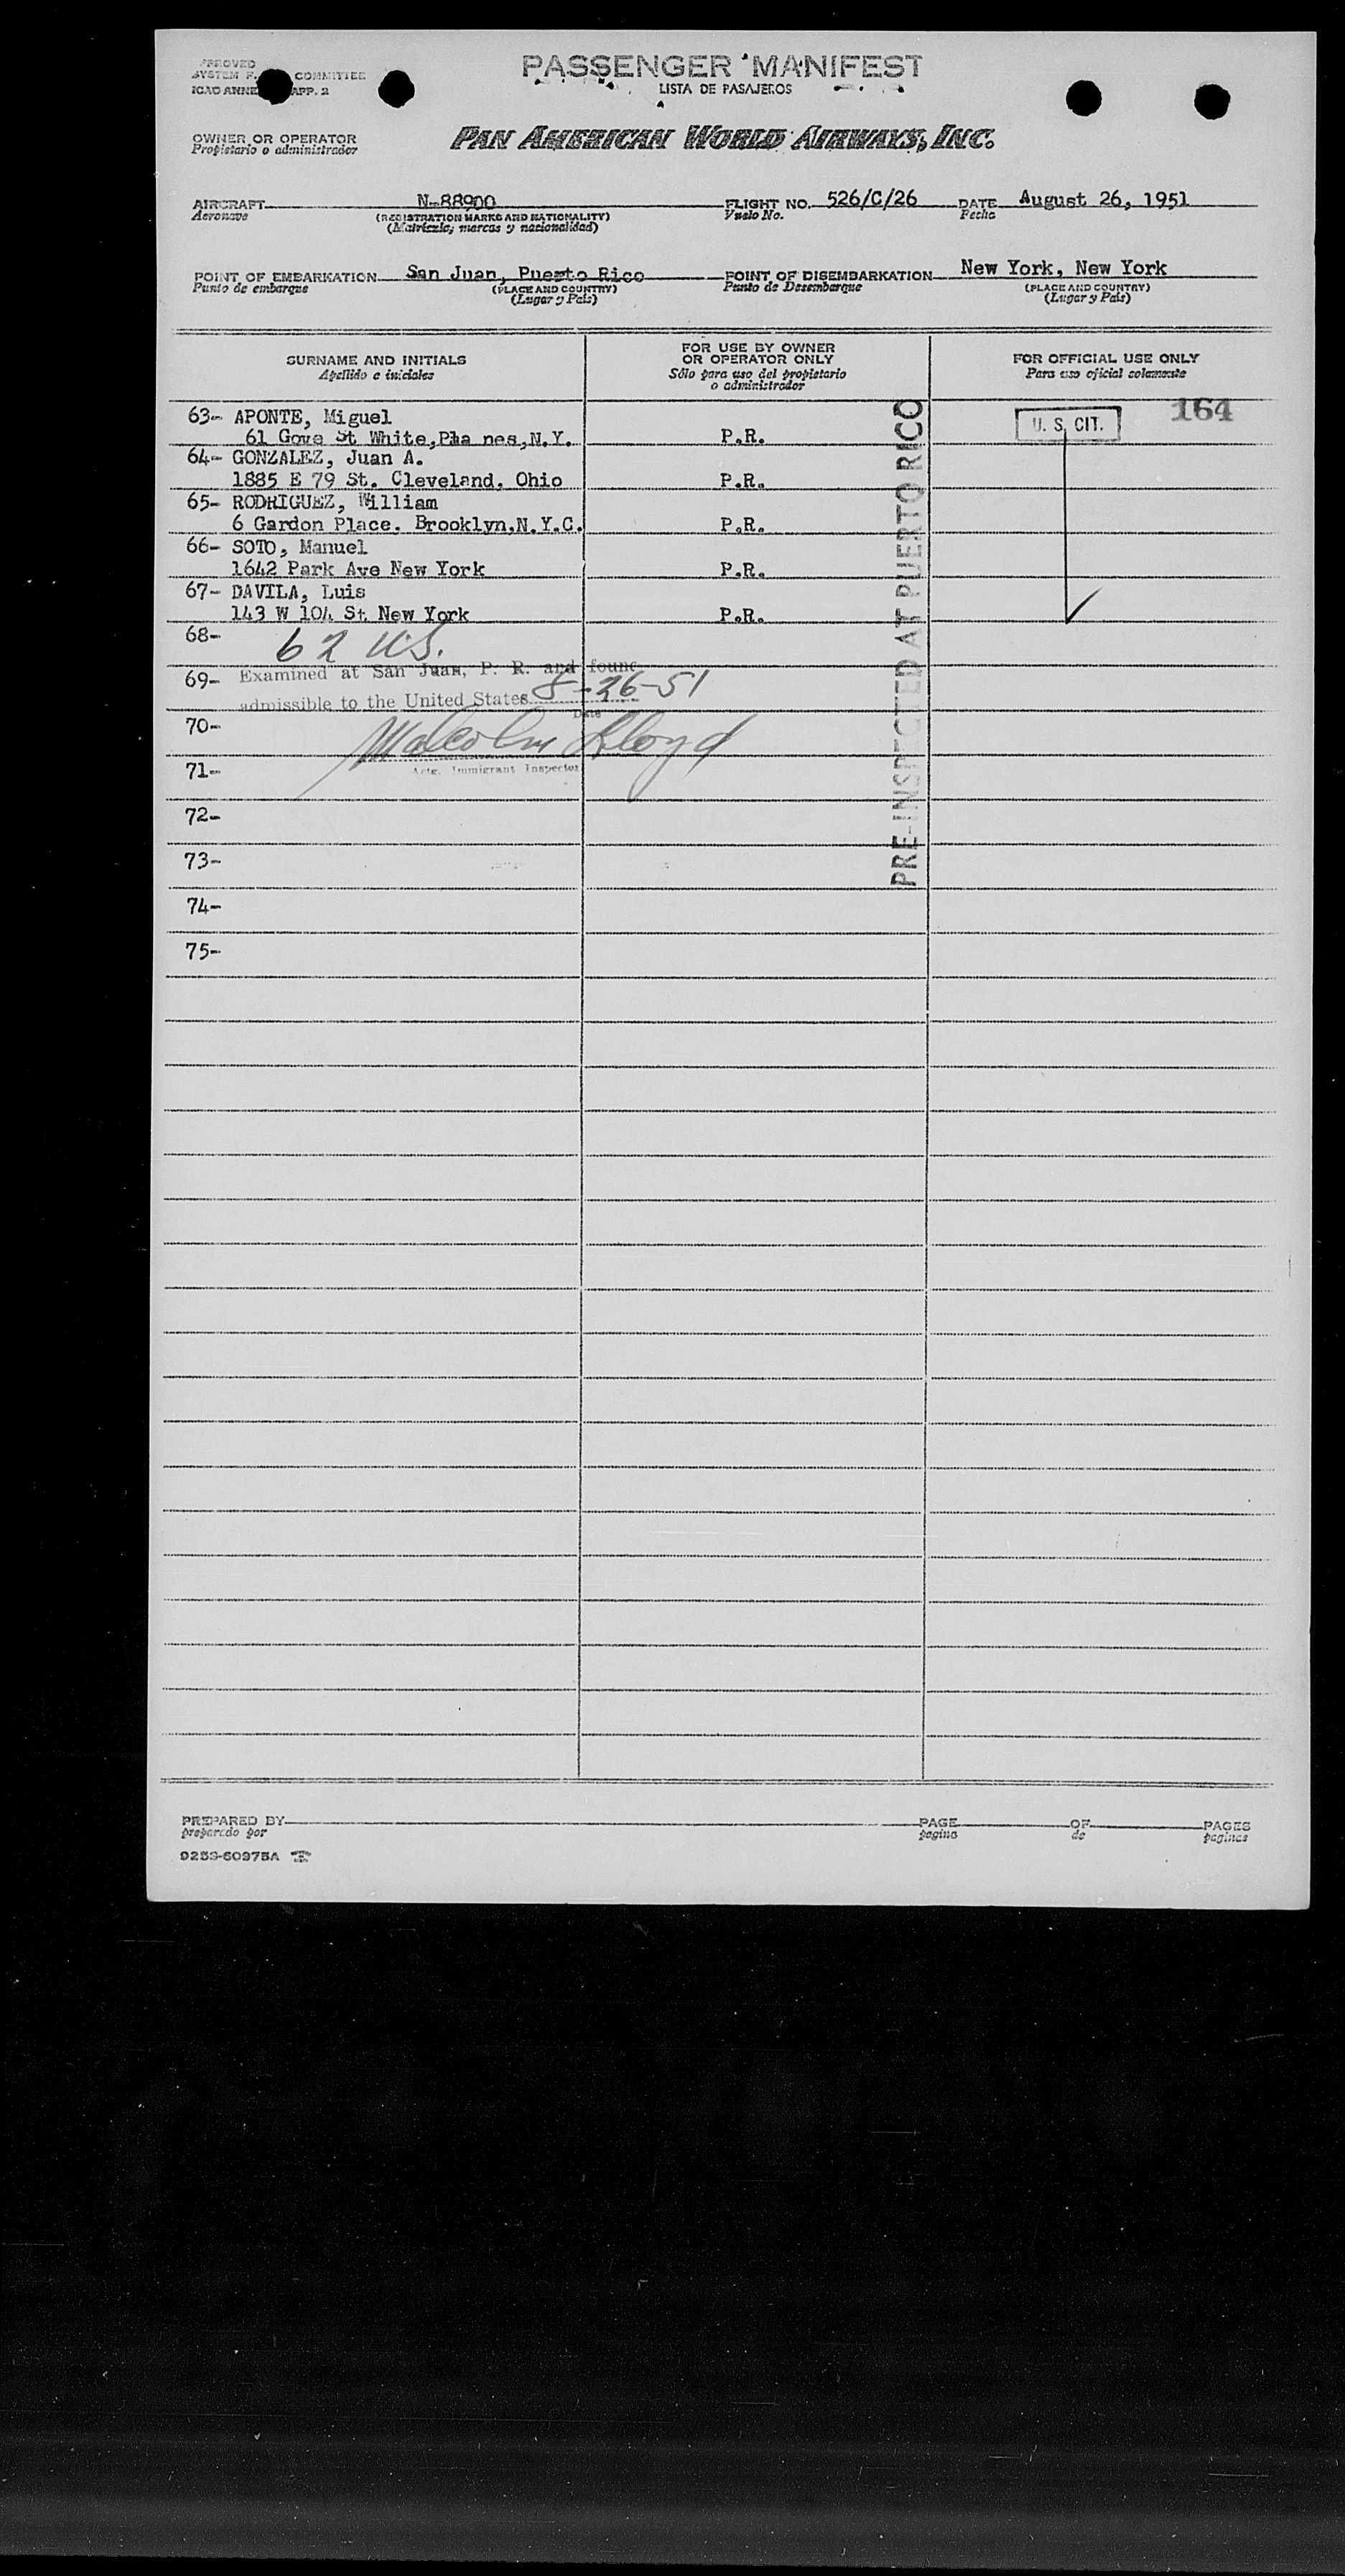 PASSENGER MANIFEST
LISTA DE PASAJEROS
APPROVED
SYSTEM F. COMMITTEE
ICAO ANNE APP. 2
OWNER OR OPERATOR
Propietario o administrador
PAN AMERICAN WORLD AIRWAYS, INC.
AIRCRAFT N-88900 FLIGHT NO. 526/C/26 DATE August 26, 1951
Aeronave (REGISTRATION MARKS AND NATIONALITY) Vuelo No. Fecha
(Matrícula, marcas y nacionalidad)
POINT OF EMBARKATION San Juan, Puerto Rico POINT OF DISEMBARKATION New York, New York
Punto de embarque (PLACE AND COUNTRY) Punto de Desembarque (PLACE AND COUNTRY)
(Lugar y País) (Lugar y País)
SURNAME AND INITIALS
Apellido e iniciales
FOR USE BY OWNER
OR OPERATOR ONLY
Sólo para uso del propietario
o administrador
FOR OFFICIAL USE ONLY
Para uso oficial solamente
164
63- APONTE, Miguel U. S. CIT.
61 Gove St White,Pla nes,N.Y. P.R.
64- GONZALEZ, Juan A.
1885 E 79 St. Cleveland, Ohio P.R.
65- RODRIGUEZ, William
6 Gardon Place. Brooklyn.N.Y.C. P.R.
66- SOTO, Manuel
1642 Park Ave New York P.R.
67- DAVILA, Luis
143 W 104 St. New York P.R.
68- 62 U.S.
69- Examined at San Juan, P. R. and found
admissible to the United States 8-26-51
Date
70- Malcolm Lloyd
71- Actg. Immigrant Inspector
72-
73-
74-
75-
PRE-INSPECTED AT PUERTO RICO
PREPARED BY PAGE OF PAGES
preparado por pagina de paginas
9253-60975A